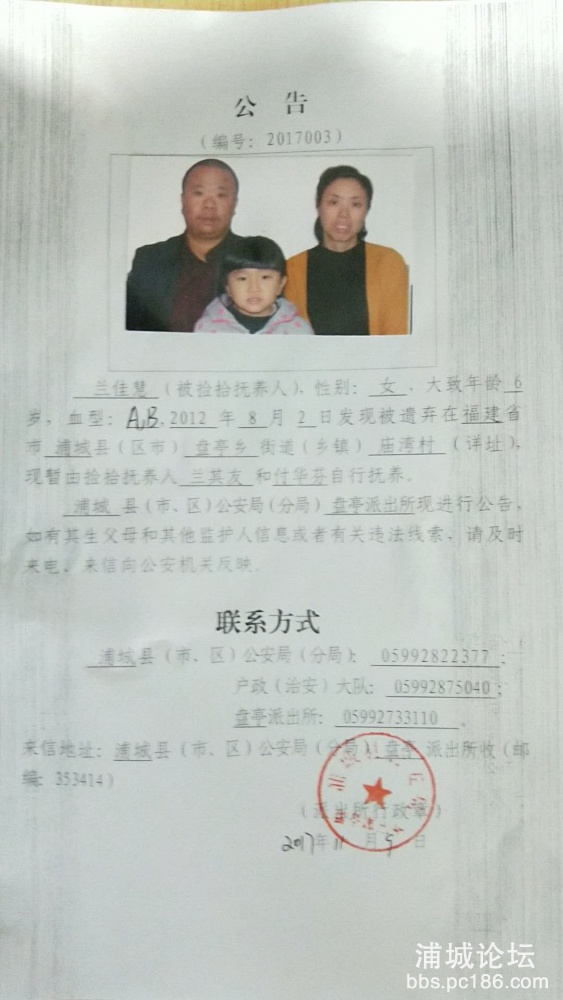 公 告
（编号：2017003）
兰佳慧（被捡拾抚养人），性别：女，大致年龄 6
岁，血型：A,B，2012 年 8 月 2 日发现被遗弃在福建省
市 浦城县（区市）盘亭乡 街道（乡镇）庙湾村（详址），
现暂由捡拾抚养人 兰其友 和付华芬自行抚养。
浦城 县（市、区）公安局（分局）盘亭派出所现进行公告，
如有其生父母和其他监护人信息或者有关违法线索，请及时
来电、来信向公安机关反映。
联系方式
浦城县（市、区）公安局（分局）：05992822377；
户政（治安）大队：05992875040；
盘亭派出所：05992733110 。
来信地址：浦城县（市、区）公安局（分局）盘亭 派出所收（邮
编：353414）
（派出所行政章）
2017年 11 月 5 日
浦城论坛
bbs.pc186.com